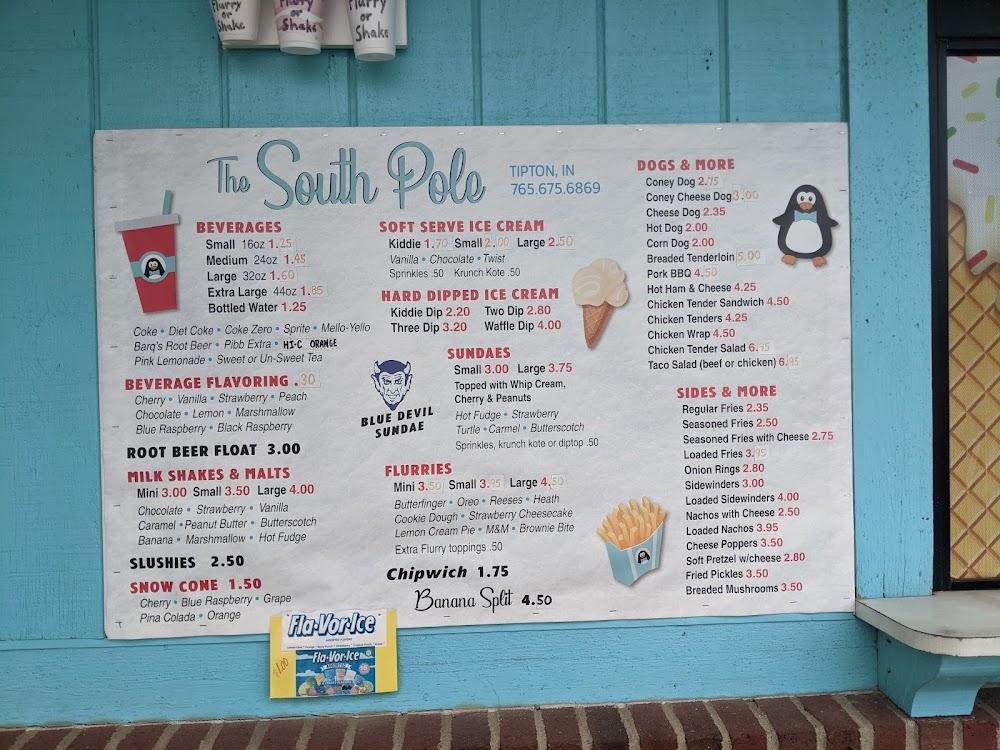 Flurry or Shake
Flurry or Shake
Flurry or Shake
The South Pole
TIPTON, IN
765.675.6869
BEVERAGES
Small 16oz 1.25
Medium 24oz 1.45
Large 32oz 1.60
Extra Large 44oz 1.85
Bottled Water 1.25
Coke • Diet Coke • Coke Zero • Sprite • Mello-Yello
Barq's Root Beer • Pibb Extra • HI-C ORANGE
Pink Lemonade • Sweet or Un-Sweet Tea
BEVERAGE FLAVORING .30
Cherry • Vanilla • Strawberry • Peach
Chocolate • Lemon • Marshmallow
Blue Raspberry • Black Raspberry
ROOT BEER FLOAT 3.00
MILK SHAKES & MALTS
Mini 3.00 Small 3.50 Large 4.00
Chocolate • Strawberry • Vanilla
Caramel • Peanut Butter • Butterscotch
Banana • Marshmallow • Hot Fudge
SLUSHIES 2.50
SNOW CONE 1.50
Cherry • Blue Raspberry • Grape
Pina Colada • Orange
SOFT SERVE ICE CREAM
Kiddie 1.70 Small 2.00 Large 2.50
Vanilla • Chocolate • Twist
Sprinkles .50 Krunch Kote .50
HARD DIPPED ICE CREAM
Kiddie Dip 2.20 Two Dip 2.80
Three Dip 3.20 Waffle Dip 4.00
BLUE DEVIL
SUNDAE
SUNDAES
Small 3.00 Large 3.75
Topped with Whip Cream,
Cherry & Peanuts
Hot Fudge • Strawberry
Turtle • Carmel • Butterscotch
Sprinkles, krunch kote or diptop .50
FLURRIES
Mini 3.50 Small 3.95 Large 4.50
Butterfinger • Oreo • Reeses • Heath
Cookie Dough • Strawberry Cheesecake
Lemon Cream Pie • M&M • Brownie Bite
Extra Flurry toppings .50
Chipwich 1.75
Banana Split 4.50
DOGS & MORE
Coney Dog 2.75
Coney Cheese Dog 3.00
Cheese Dog 2.35
Hot Dog 2.00
Corn Dog 2.00
Breaded Tenderloin 5.00
Pork BBQ 4.50
Hot Ham & Cheese 4.25
Chicken Tender Sandwich 4.50
Chicken Tenders 4.25
Chicken Wrap 4.50
Chicken Tender Salad 6.95
Taco Salad (beef or chicken) 6.95
SIDES & MORE
Regular Fries 2.35
Seasoned Fries 2.50
Seasoned Fries with Cheese 2.75
Loaded Fries 3.95
Onion Rings 2.80
Sidewinders 3.00
Loaded Sidewinders 4.00
Nachos with Cheese 2.50
Loaded Nachos 3.95
Cheese Poppers 3.50
Soft Pretzel w/cheese 2.80
Fried Pickles 3.50
Breaded Mushrooms 3.50
Fla·Vor·Ice
Fla·Vor·Ice
$1.00